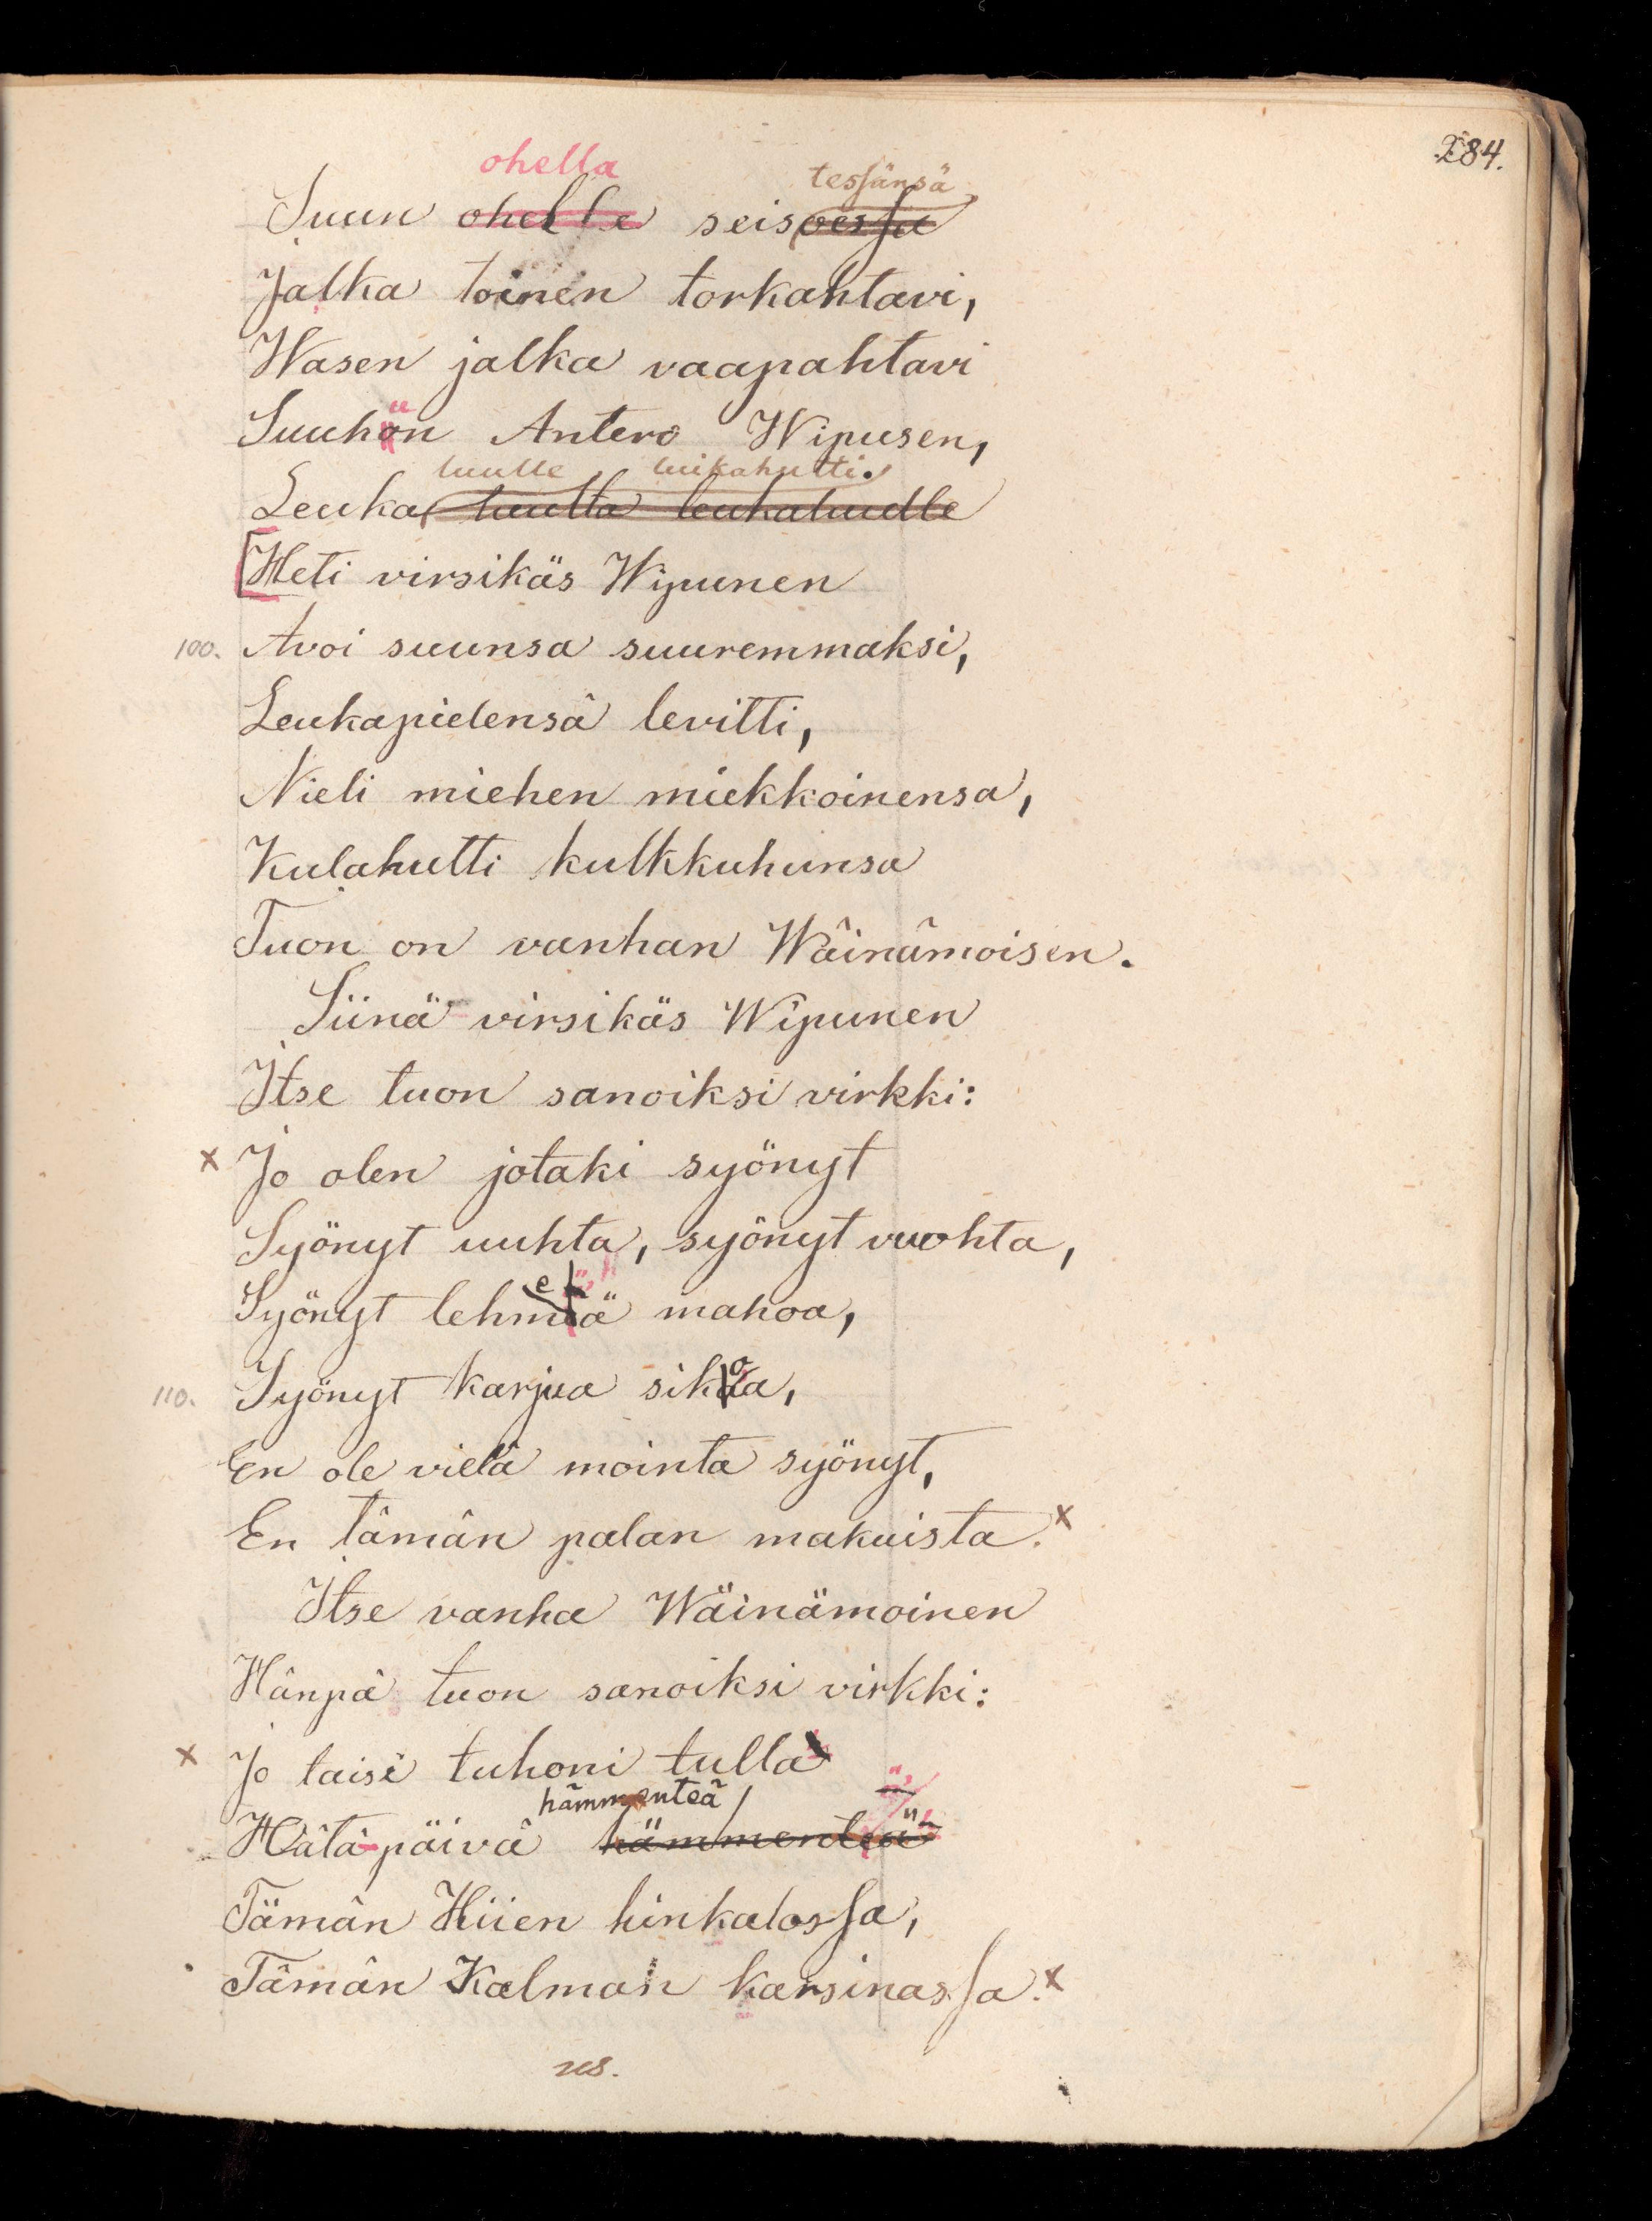 284.
ohella tessänsä
Suun ohelle seisoessa
Jalka toinen torkahtavi,
Wasen jalka vaapahtavi
Suuhun Antero Wipusen,
luulle luikahutti.
Leuka luulta leukaluulle
[Heti virsikäs Wipunen
100. Avoi suunsa suuremmaksi,
Leukapielensä levitti,
Nieli miehen miekkoinensa,
Kulahutti kulkkuhunsa
Tuon on vanhan Wäinämoisen.
Siinä virsikäs Wipunen
Itse tuon sanoiksi virkki:
x Jo olen jotaki syönyt
Syönyt uuhta, syönyt vuohta,
Syönyt lehmeä mahoa,
110. Syönyt karjua sikoa,
En ole vielä mointa syönyt,
En tämän palan makuista. x
Itse vanha Wäinämoinen
Hänpä tuon sanoiksi virkki:
x Jo taisi tuhoni tulla
hämmenteä
Hätä-päivä hämmenteä
Tämän Hiien hinkalossa,
Tämän Kalman karsinassa. x